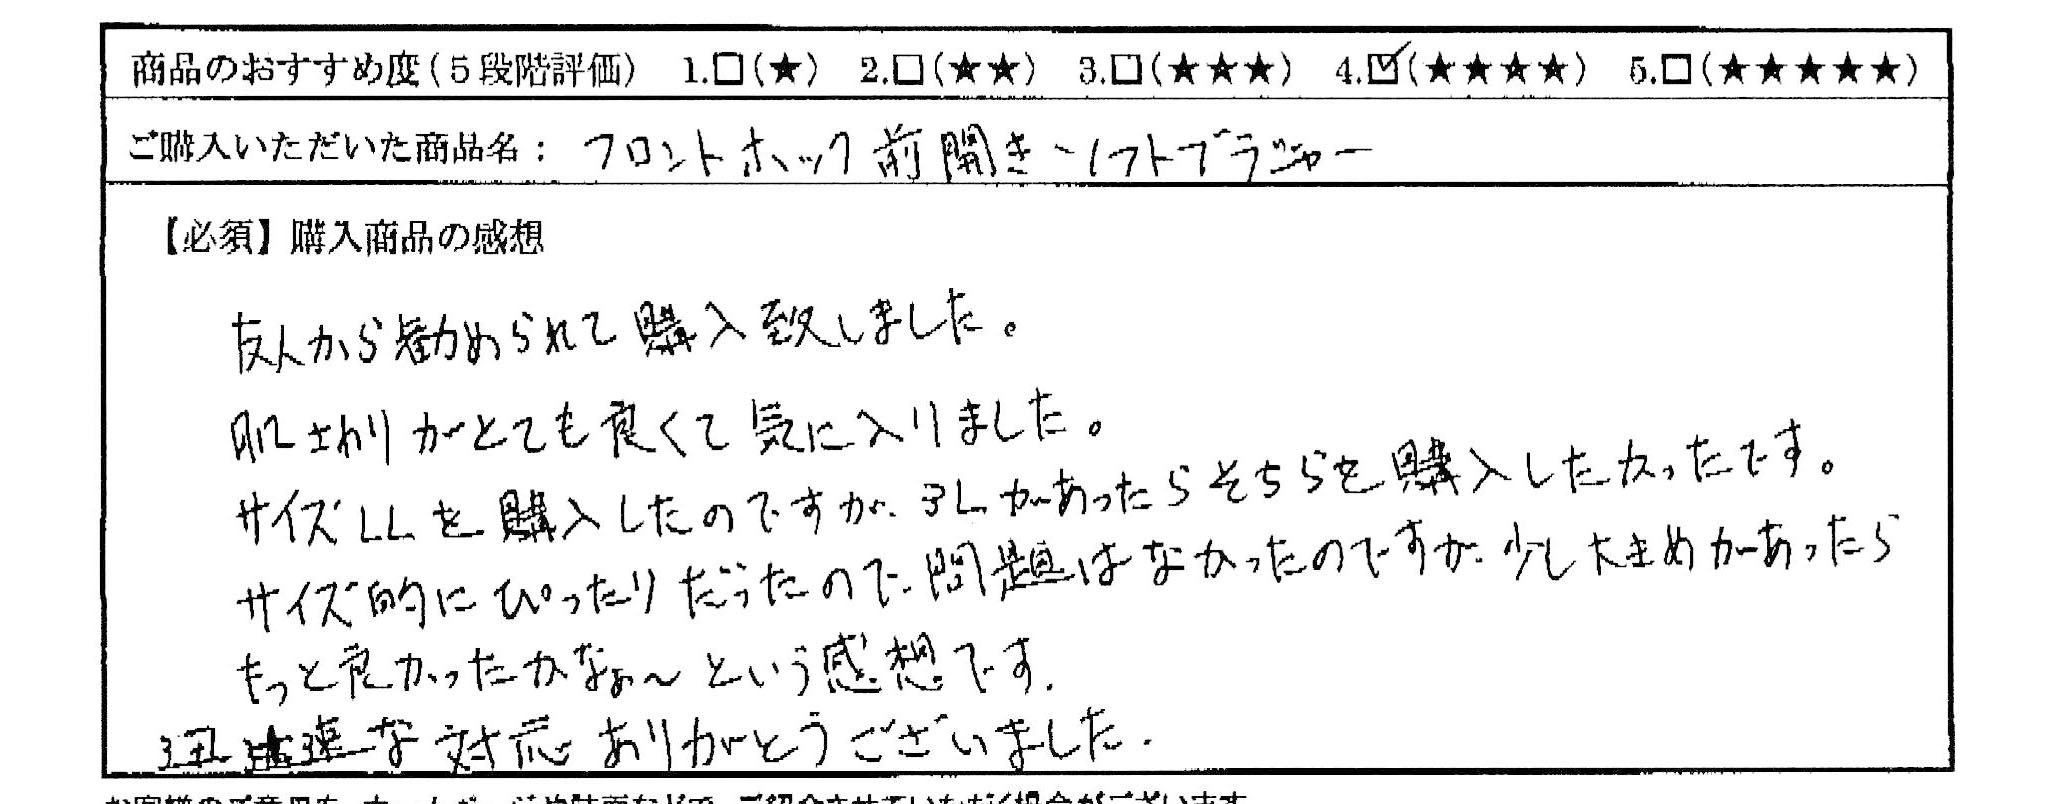 商品のおすすめ度(5段階評価) 1.□(★) 2.□(★★) 3.□(★★★) 4.☑(★★★★) 5.□(★★★★★)
ご購入いただいた商品名: フロントホック前開きソフトブラジャー
【必須】購入商品の感想
友人から勧められて購入致しました。
肌さわりがとても良くて気に入りました。
サイズLLを購入したのですが、3Lがあったらそちらを購入したかったです。
サイズ的にぴったりだったので、問題はなかったのですが、少し大きめがあったら
もっと良かったかなぁ〜という感想です。
迅速な対応ありがとうございました。